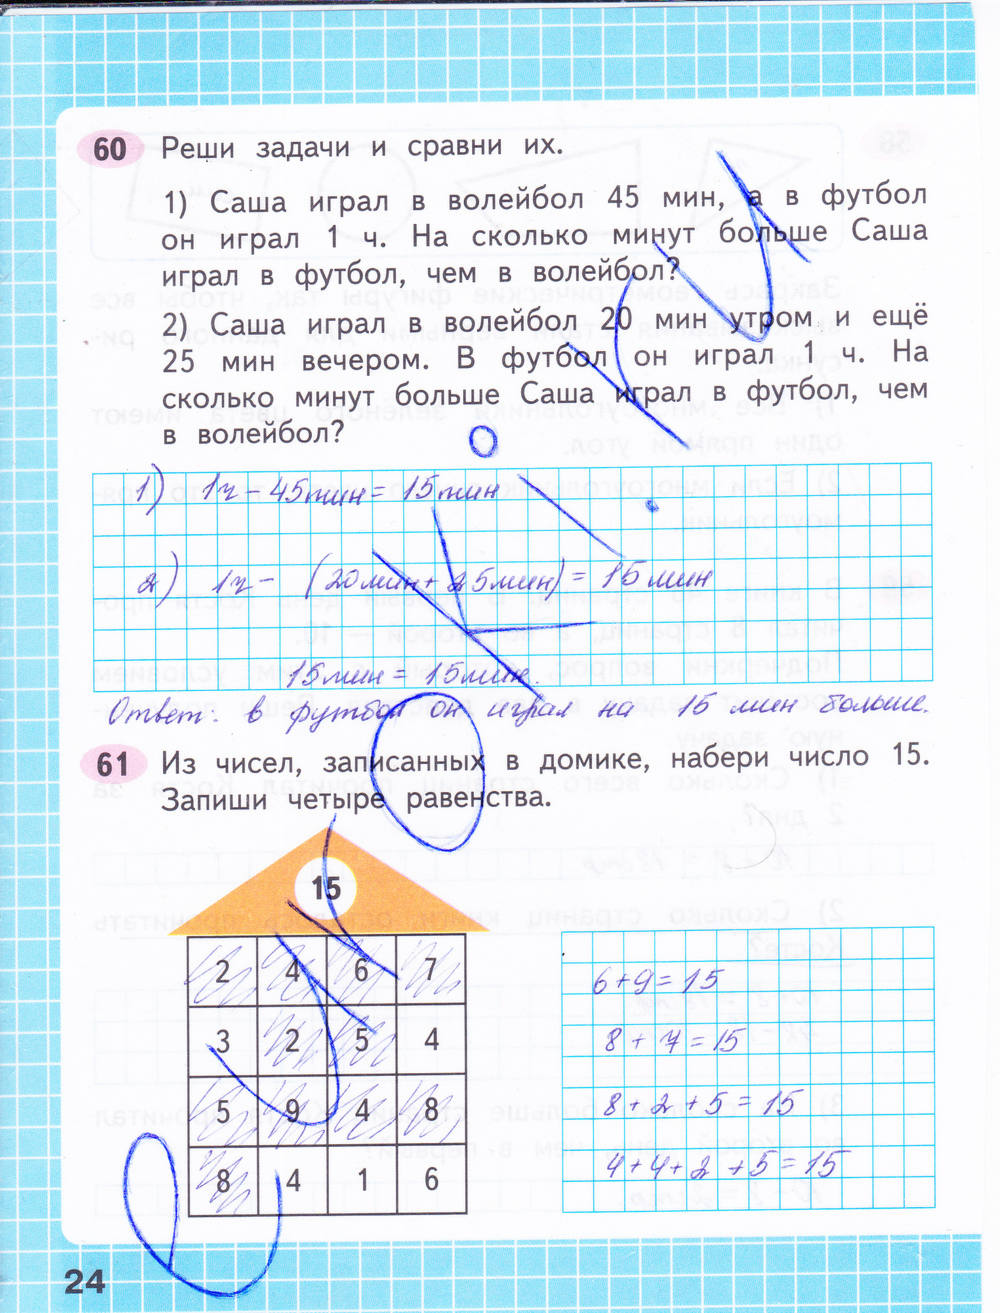 60 Реши задачи и сравни их.
1) Саша играл в волейбол 45 мин, а в футбол
он играл 1 ч. На сколько минут больше Саша
играл в футбол, чем в волейбол?
2) Саша играл в волейбол 20 мин утром и ещё
25 мин вечером. В футбол он играл 1 ч. На
сколько минут больше Саша играл в футбол, чем
в волейбол?
1) 1ч - 45мин = 15мин
2) 1ч - (20мин + 25мин) = 15мин
15мин = 15мин
Ответ: в футбол он играл на 15 мин больше.
61 Из чисел, записанных в домике, набери число 15.
Запиши четыре равенства.
15
2 4 6 7
3 2 5 4
5 9 4 8
8 4 1 6
6+9=15
8+7=15
8+2+5=15
4+4+2+5=15
24